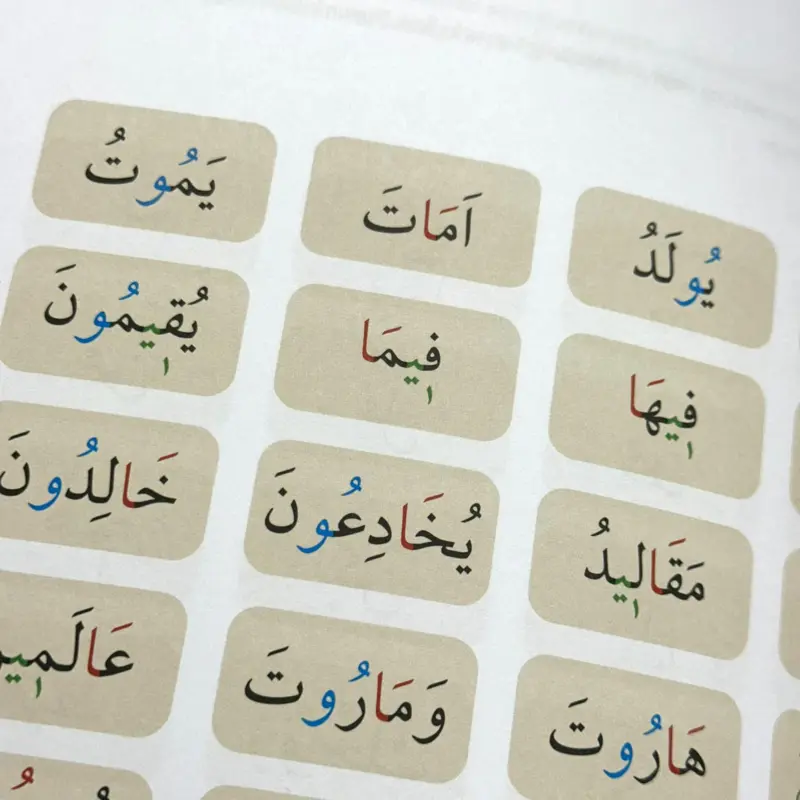 يُولَدُ اَمَاتَ يَمُوتُ
فٖيهَا فٖيمَا يُقٖيمُونَ
مَقَالٖيدُ يُخَادِعُونَ خَالِدُونَ
هَارُوتَ وَمَارُوتَ